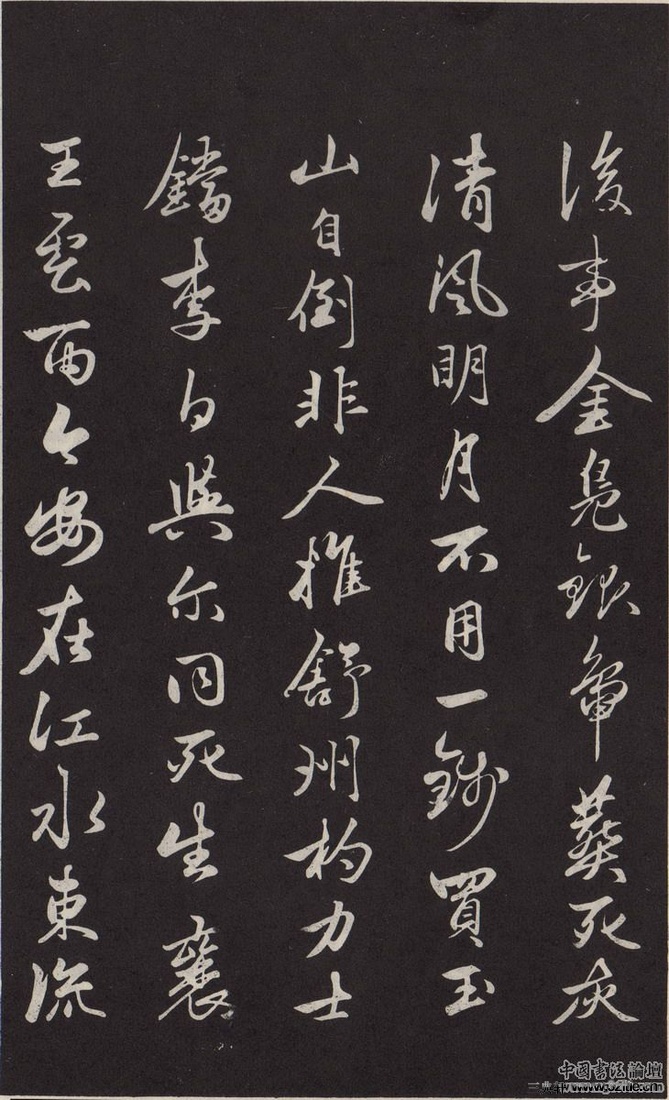 後事金鳧銀葬死灰
清風明月不用一錢買玉
山自倒非人推舒州杓力士
鐺李白與尔同死生襄
王雲雨今安在江水東流
中國書法論壇